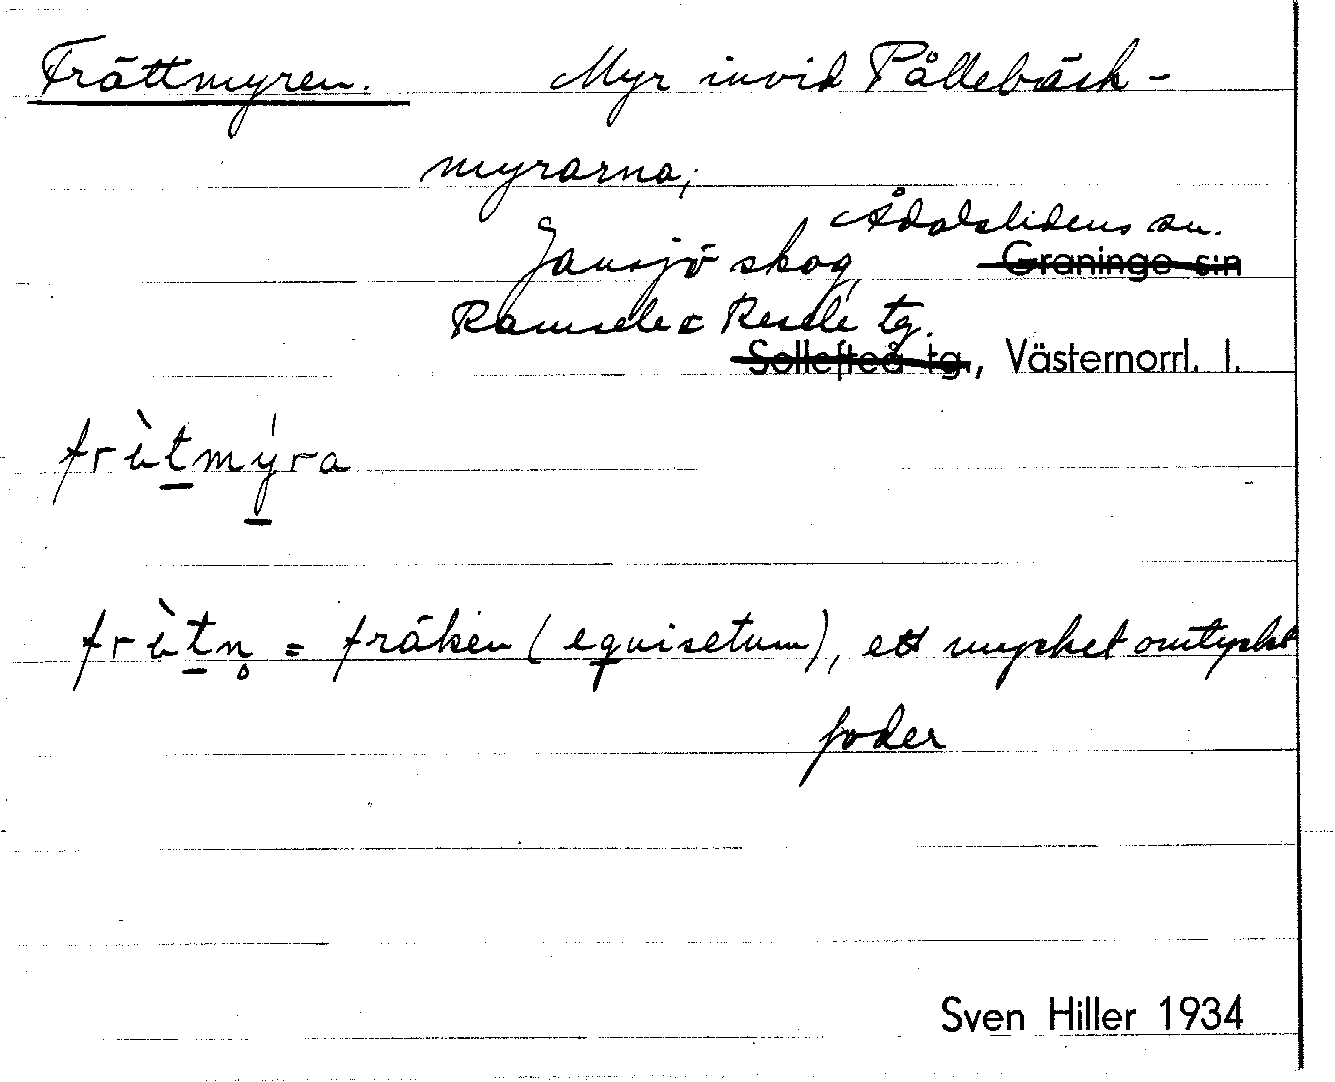 Frättmyren. Myr invid Pållebäck-
myrarna;
Ådalslidens sn.
Jansjö skog, Graninge s:n
Ramsele o Resele tg.
Sollefteå tg., Västernorrl. l.
frὰtmýra
frὰtn̥ = fräken (equisetum), ett mycket omtyckt
foder
Sven Hiller 1934